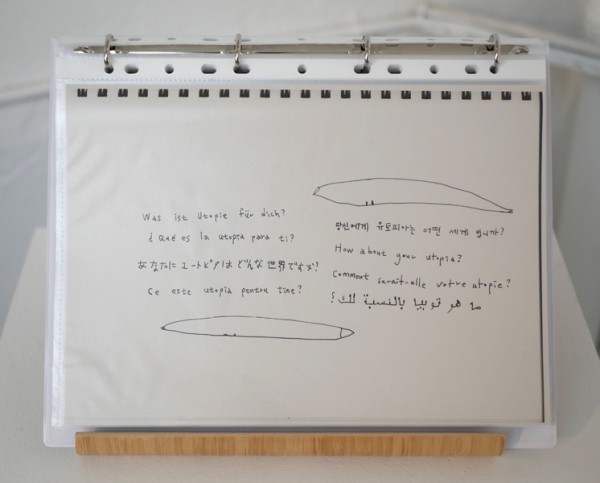 Was ist Utopie für dich?
¿ Qué es la utopía para ti?
あなたにユートピアはどんな世界ですか?
Ce este utopia pentru tine?
당신에게 유토피아는 어떤 세계 입니까?
How about your utopia?
Comment serait-elle votre utopie?
ما هو توبيا بالنسبة لك؟